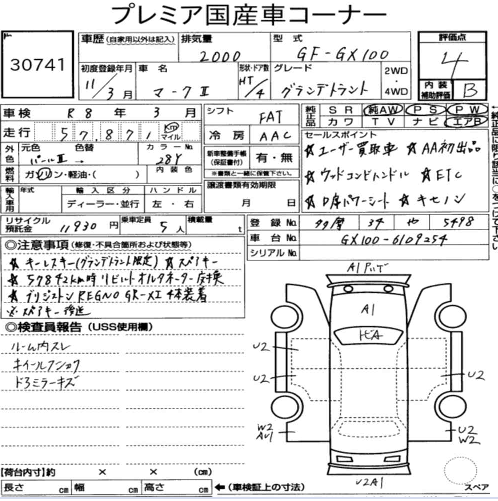 プレミア国産車コーナー
30741
車歴 (自家用以外は記入)
排気量
2000
型式
GF-GX100
評価点
4
初度登録年月
11/3月
車名
マークⅡ
形状・ドア数
HT/4
グレード
グランデトラント
2WD・4WD
内装補助評価
B
車検 R8年3月
走行 57,871 km マイル
外色
元色
パールⅡ
色替
→
カラーNo.
内装色
燃料
ガソリン・軽油・( )
輸入車用
年式
輸入区分
ディーラー・並行
ハンドル
左・右
シフト
FAT
冷房
AAC
新車整備手帳(保証書付)
有・無
※書類と一緒に保管下さい。
譲渡書類有効期限
月 日
純正品
SR 純AW PS PW
カワ TV ナビ エアB
セールスポイント
☆ユーザー買取車 ☆AA初出品
☆ウッドコンビハンドル ☆ETC
☆D席パワーシート ☆キセノン
純正品に限り該当に○をつけて下さい。
リサイクル預託金
11930円
乗車定員
5人
積載量
t
登録No.
34 や 5498
車台No.
GX100-6109254
シリアルNo.
◎注意事項(修復・不具合箇所および状態等)
☆キーレスキー(グランデトラント限定) ☆スペアキー
☆57842km時 リビルトオルタネーター交換
☆ブリジストン REGNO GR-XI 4本装着
※スペアキー後送
◎検査員報告 (USS使用欄)
ルーム内スレ
ホイールアンショウ
ドアミラーキズ
A1
ヒA
U2
U2
U2
U2
W2
AU1
U2
W2
U2A1
【荷台内寸】 × × (cm)
長さ cm 幅 cm 高さ cm
←(車検証上の寸法)
スペア